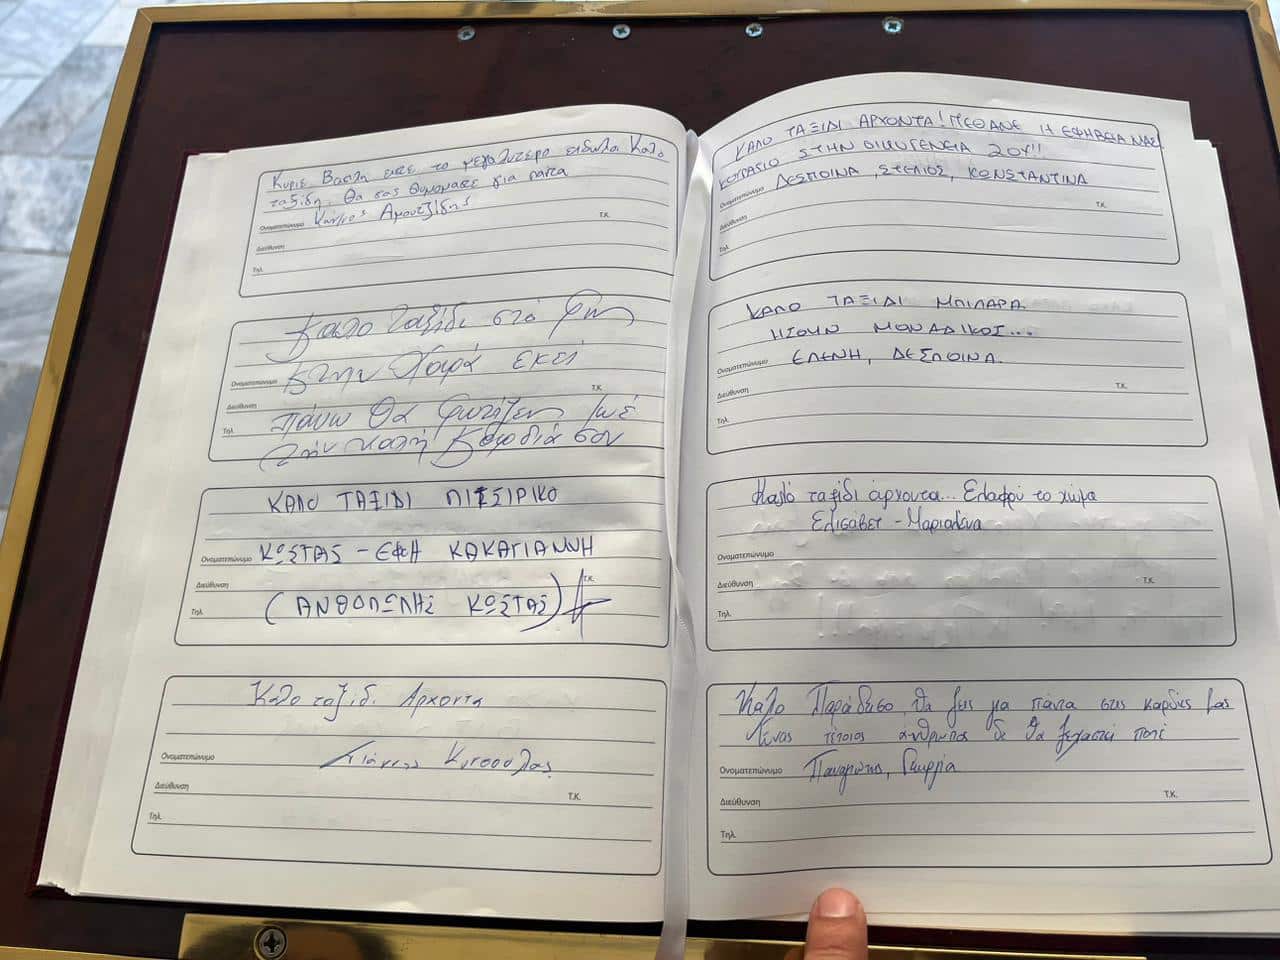 Κυριε Βασιλη ειστε το μεγαλυτερο ειδωλο Καλο
ταξιδι. Θα σας θυμομαστε για παντα
Ονοματεπώνυμο Αμουτζίδης
Τ.Κ.
Διεύθυνση
Τηλ.
Καλο ταξίδι στό φῶς
στην Χαρά εκεί
Ονοματεπώνυμο
Τ.Κ.
Διεύθυνση
πάνω θα φωτίζεις μέ
Τηλ.
την καλή καρδιά σου
ΚΑΛΟ ΤΑΞΙΔΙ ΠΙΣΣΙΡΙΚΟ
Ονοματεπώνυμο ΚΩΣΤΑΣ - ΕΦΗ ΚΑΚΑΓΙΑΝΝΗ
Διεύθυνση
Τ.Κ.
Τηλ. (ΑΝΘΟΠΩΛΗΣ ΚΩΣΤΑΣ)
Καλο ταξιδι Αρχοντα
Ονοματεπώνυμο Γιάννης
Διεύθυνση
Τ.Κ.
Τηλ.
ΚΑΛΟ ΤΑΞΙΔΙ ΑΡΧΟΝΤΑ! ΠΕΘΑΝΕ Η ΕΦΗΒΕΙΑ ΜΑΣ!
ΚΟΥΡΑΓΙΟ ΣΤΗΝ ΟΙΚΟΓΕΝΕΙΑ ΣΟΥ!!
Ονοματεπώνυμο ΔΕΣΠΟΙΝΑ, ΣΤΕΛΙΟΣ, ΚΩΝΣΤΑΝΤΙΝΑ
Τ.Κ.
Διεύθυνση
Τηλ.
ΚΑΛΟ ΤΑΞΙΔΙ ΜΠΙΛΑΡΑ.
ΗΣΟΥΝ ΜΟΝΑΔΙΚΟΣ...
Ονοματεπώνυμο ΕΛΕΝΗ, ΔΕΣΠΟΙΝΑ.
Τ.Κ.
Διεύθυνση
Τηλ.
Καλό ταξίδι άρχοντα... Ελαφρύ το χώμα
Ελισάβετ - Μαριαλένα
Ονοματεπώνυμο
Διεύθυνση
Τ.Κ.
Τηλ.
Καλό Παράδεισο θα ζεις για πάντα στις καρδιές μας
Ένας τέτοιος άνθρωπος δε θα ξεχαστεί ποτέ
Ονοματεπώνυμο Παναγιώτης, Γεωργία
Τ.Κ.
Διεύθυνση
Τηλ.